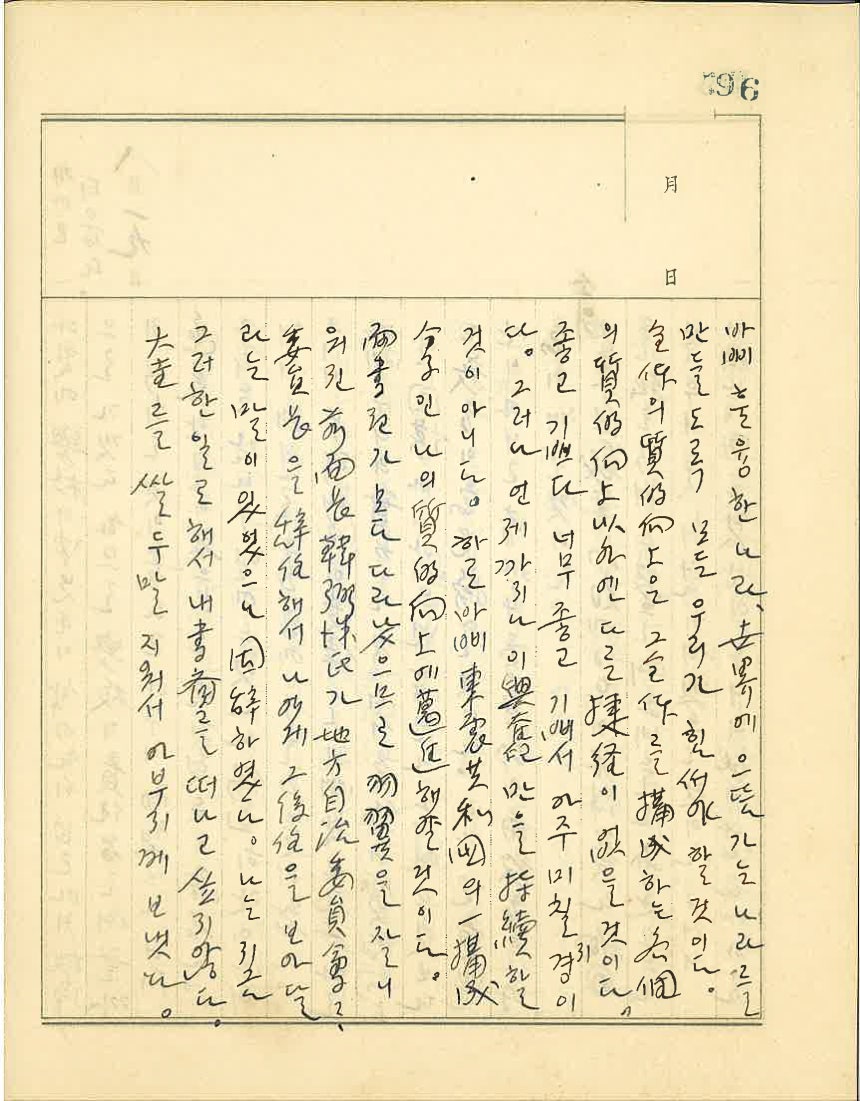 96
月
日
바삐 훌융한 나라, 世界에 으뜸가는 나라를
만들도록 모든 우리가 힘써야 할 것이다.
全体의 質的向上은 그 全体를 搆成하는 各個
의 質的向上以外엔 다른 捷径이 없을 것이다.
좋고 기쁘다 너무 좋고 기뻐서 아주 미칠 경이
다. 그러나 언제까지나 이 興奮만을 持續할
것이 아니다. 하로 바삐 東震共和國의 一搆成
分子인 나의 質的向上에 邁進해할 것이다.
面書記가 모다 다라낫으므로 羽翼을 잘니
워진 前面長 韓弼洙氏가 地方自治委員會
委員長을 辞任해서 나에게 그 後任을 보아달
라는 말이 있었으나 固辞하였다. 나는 지금
그러한 일로 해서 내 書齋를 떠나고 싶지 않다.
大圭를 쌀 두말 지워서 아부지께 보냇다.